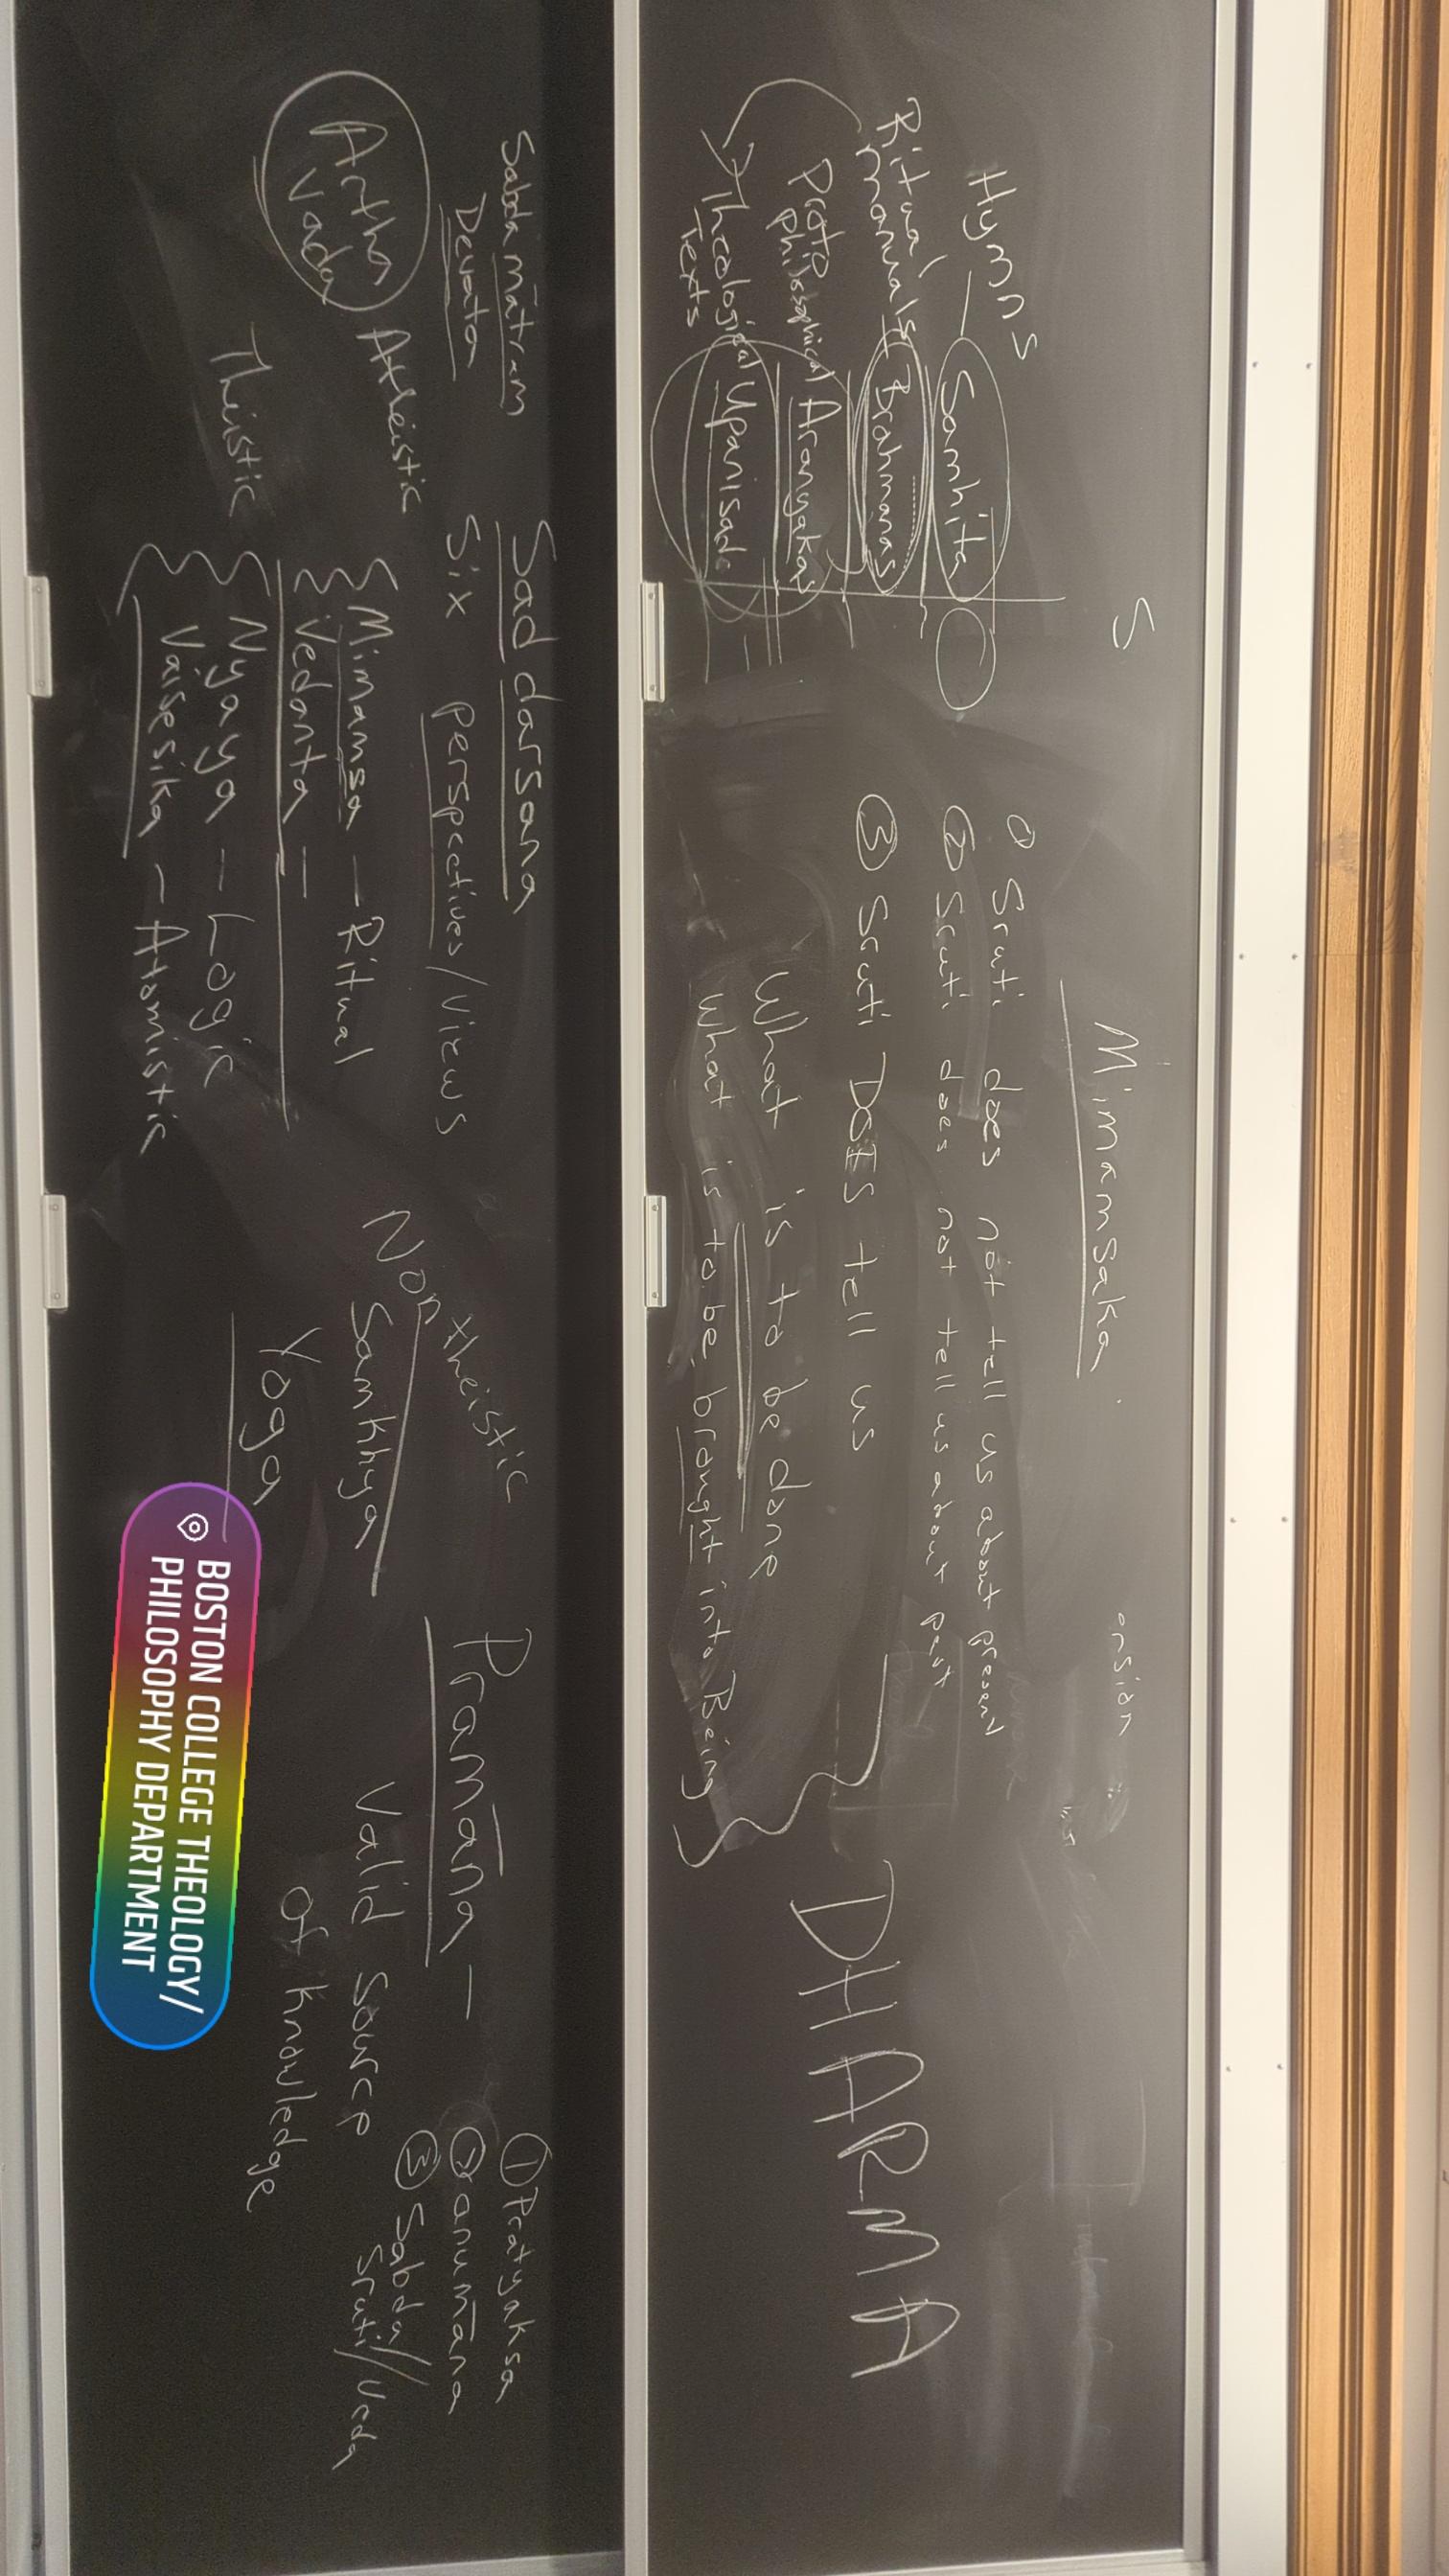 S
Mimamsaka
ension
Hymns
Samhita
Ritual manuals
Brahmanas
Proto philosophical
Aranyakas
Theological Texts
Upanisads
① Sruti does not tell us about present
② Sruti does not tell us about past
③ Sruti DOES tell us
What is to be done
What is to be brought into Being
DHARMA
Sabda mātram
Devata
Artha
vada
Sad darsana
Six perspectives/views
Atheistic
Mimamsa — Ritual
Vedanta —
Theistic
Nyaya — Logic
Vaisesika — Atomistic
Non theistic
Samkhya
Yoga
Pramāna —
Valid source
of knowledge
① Pratyaksa
② anumāna
③ Sabda/
Sruti/Veda
BOSTON COLLEGE THEOLOGY/
PHILOSOPHY DEPARTMENT